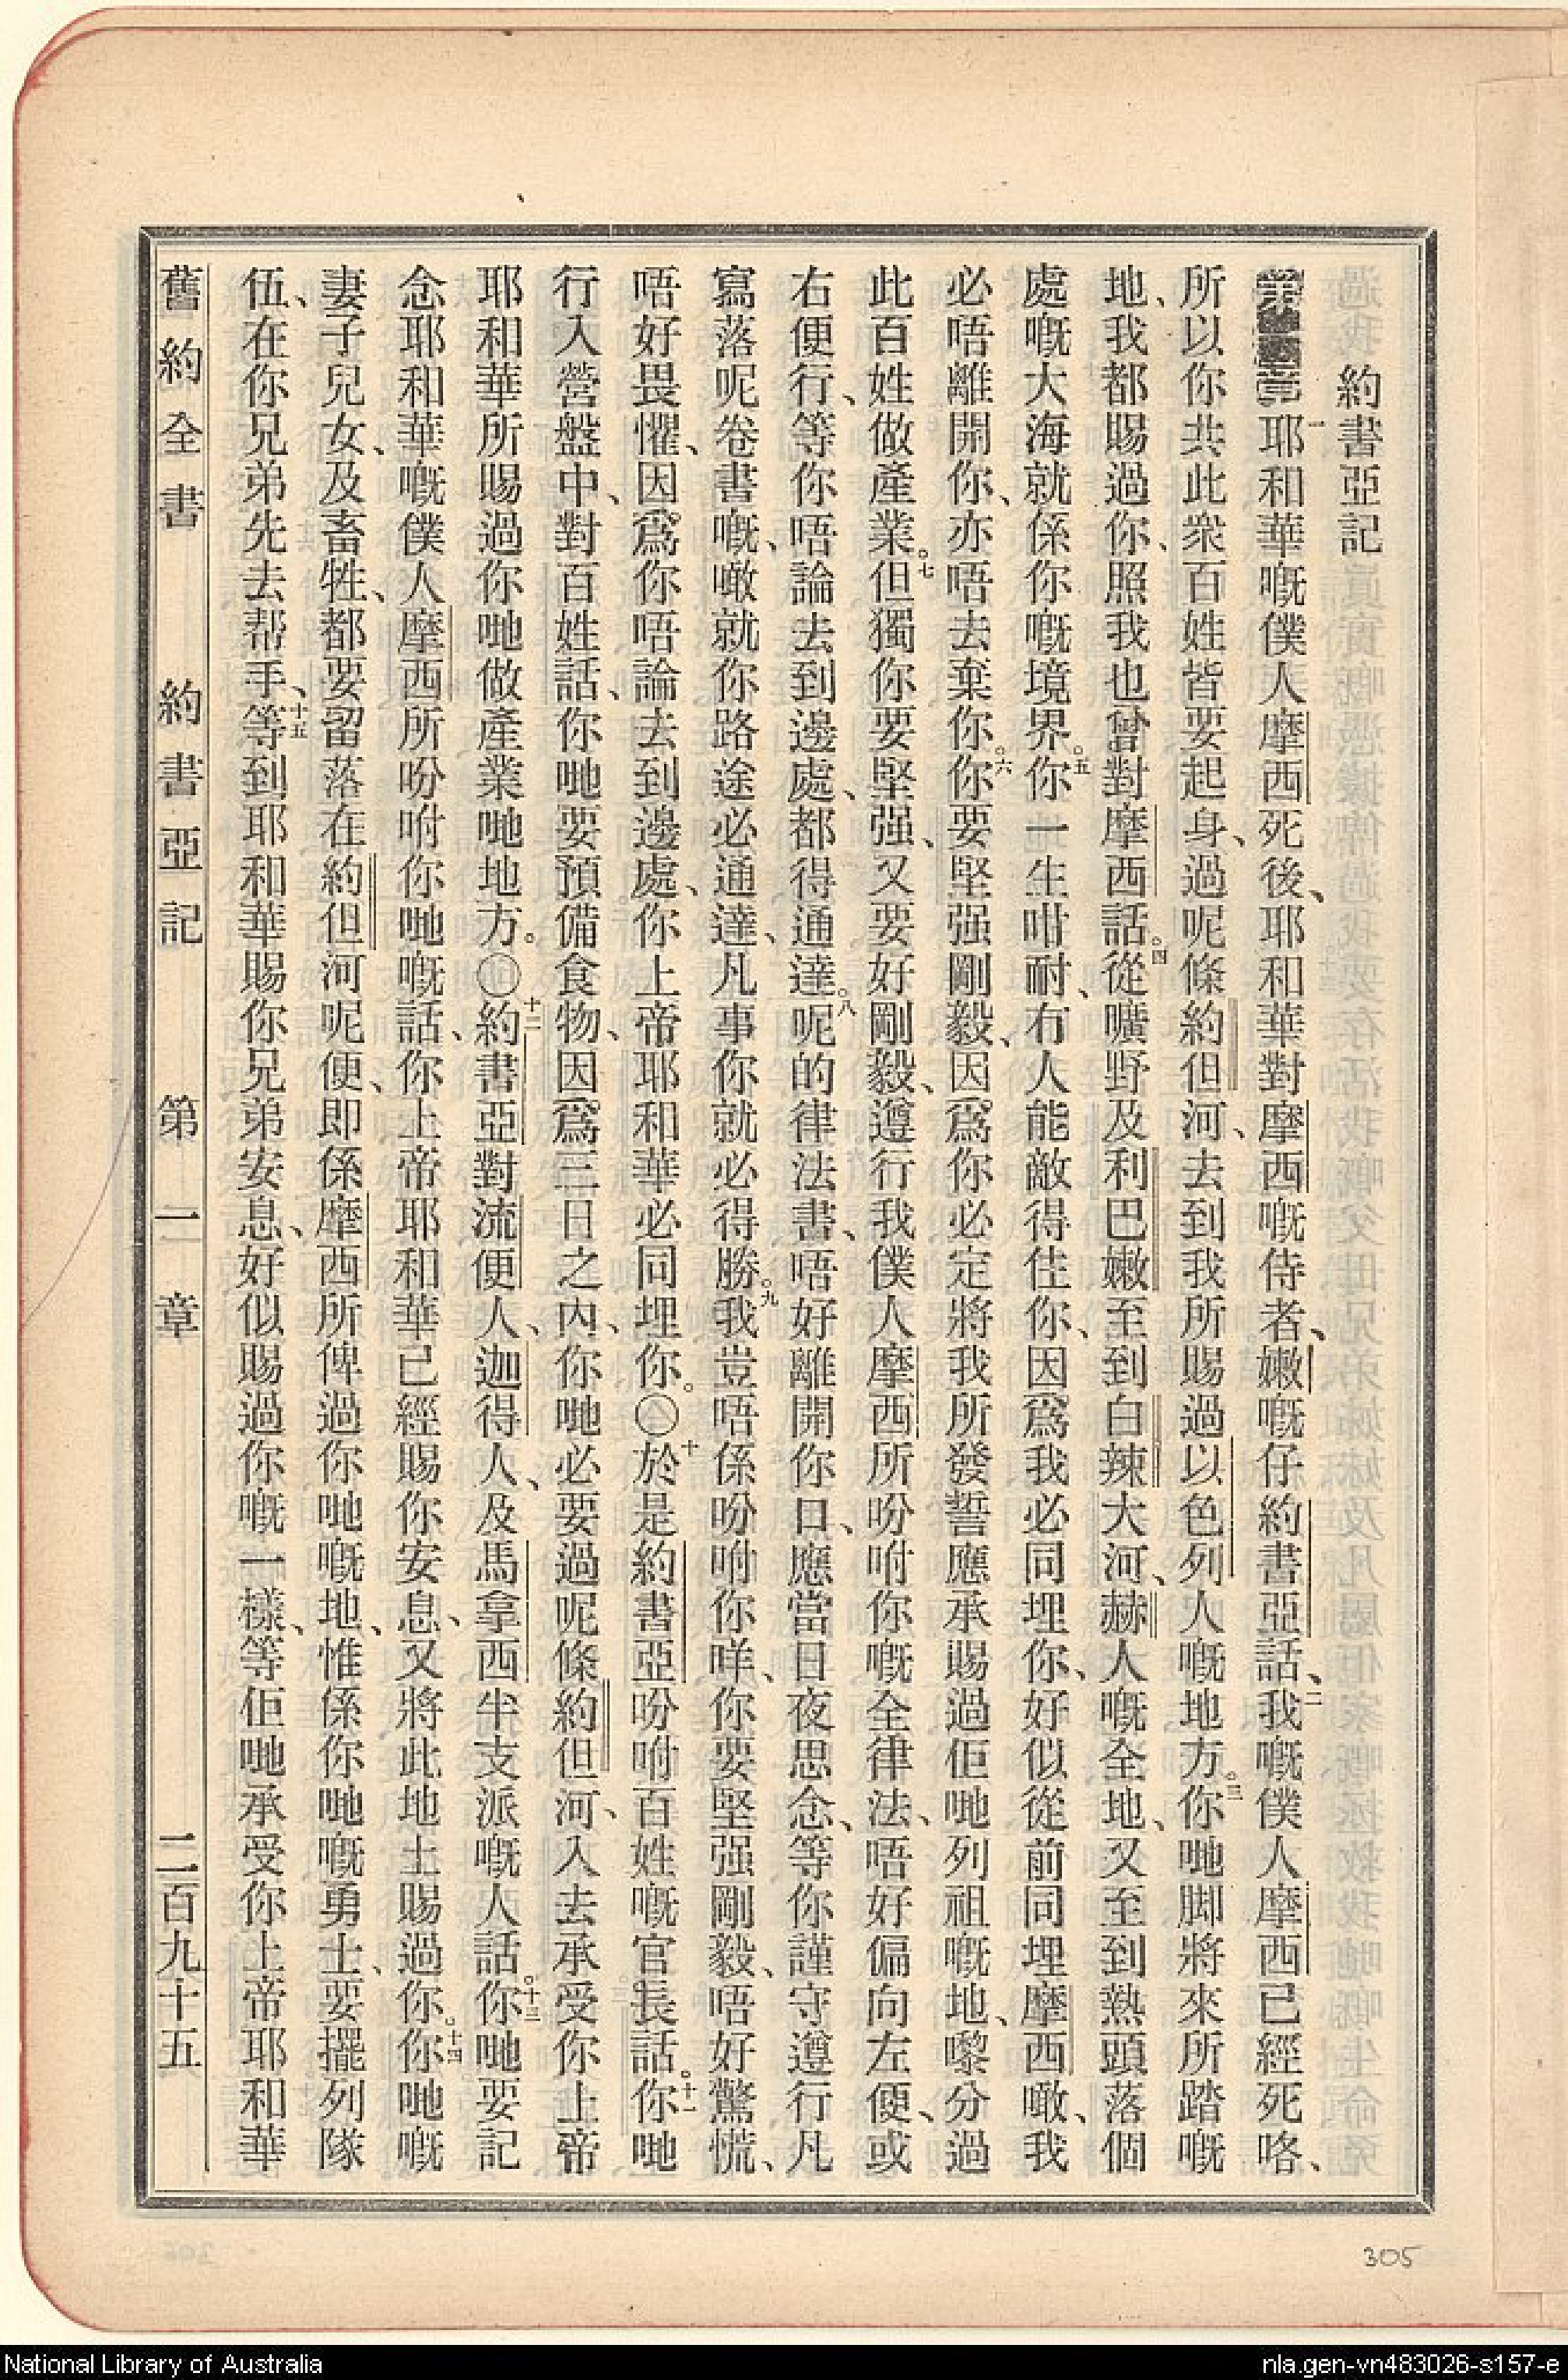 約書亞記
第一章 一耶和華嘅僕人摩西死後、耶和華對摩西嘅侍者、嫩嘅仔約書亞話、二我嘅僕人摩西已經死咯、
所以你共此衆百姓皆要起身、過呢條約但河、去到我所賜過以色列人嘅地方。三你哋脚將來所踏嘅
地、我都賜過你、照我也曾對摩西話。四從曠野及利巴嫩至到白辣大河、赫人嘅全地、又至到熱頭落個
處嘅大海就係你嘅境界。五你一生咁耐、冇人能敵得住你、因爲我必同埋你、好似從前同埋摩西噉、我
必唔離開你、亦唔去棄你。六你要堅强剛毅、因爲你必定將我所發誓應承賜過佢哋列祖嘅地、嚟分過
此百姓做產業。七但獨你要堅强、又要好剛毅、遵行我僕人摩西所吩咐你嘅全律法、唔好偏向左便、或
右便行、等你唔論去到邊處、都得通達。八呢的律法書、唔好離開你口、應當日夜思念、等你謹守遵行凡
寫落呢卷書嘅、噉就你路途必通達、凡事你就必得勝。九我豈唔係吩咐你咩、你要堅强剛毅、唔好驚慌、
唔好畏懼、因爲你唔論去到邊處、你上帝耶和華必同埋你。〇十於是約書亞吩咐百姓嘅官長話。十一你哋
行入營盤中、對百姓話、你哋要預備食物、因爲三日之內、你哋必要過呢條約但河、入去承受你上帝
耶和華所賜過你哋做產業哋地方。〇十二約書亞對流便人、迦得人、及馬拿西半支派嘅人話。十三你哋要記
念耶和華嘅僕人摩西所吩咐你哋嘅話、你上帝耶和華已經賜你安息、又將此地土賜過你。十四你哋嘅
妻子兒女、及畜牲、都要留落在約但河呢便、即係摩西所俾過你哋嘅地、惟係你哋嘅勇士、要擺列隊
伍、在你兄弟先去帮手、十五等到耶和華賜你兄弟安息、好似賜過你嘅一樣、等佢哋承受你上帝耶和華
舊約全書 約書亞記 第一章 二百九十五
305
National Library of Australia
nla.gen-vn483026-s157-e